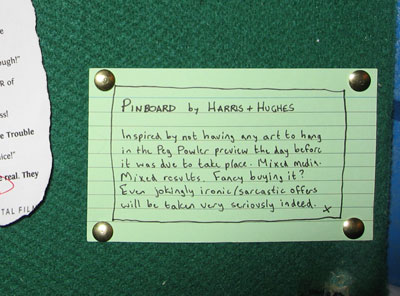 ough!"
R of
ss!
e Trouble
nice!"
e real. They
TAL FILM
PINBOARD by HARRIS + HUGHES
Inspired by not having any art to hang
in the Peg Powler preview the day before
it was due to take place. Mixed media.
Mixed results. Fancy buying it?
Even jokingly ironic/sarcastic offers
will be taken very seriously indeed. x